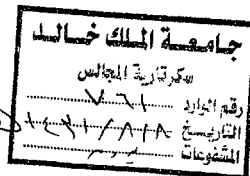 جامعة الملك خالد
سكرتارية المجالس
رقم الوارد ٧٦١
التاريخ ١٤٣١/٨/١٨
المشفوعات